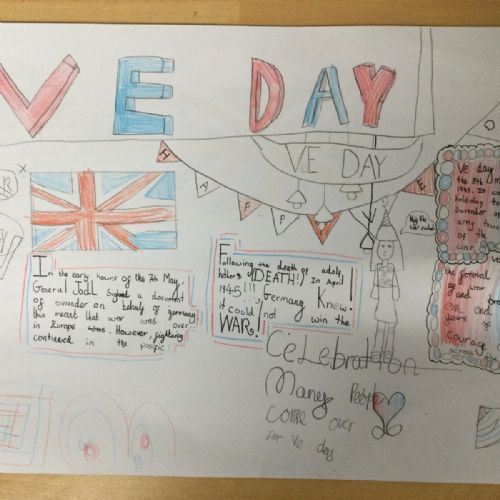 VE DAY
VE DAY
HAPP
E
In the early hours of the 7th May,
General Jodl signed a document
of surender on behalf of germany
this meant that war was over
in Europe was. However, fighting
continued in the pasific!
Following the death of adolf
hitlers (DEATH!) In April
1945!!! I
Germany Knew!
it could not win the
WAR!
Ve day
the 8th M
1945. It
holiday to
surender
army
of the
war
the formal
of war
and
evil end
years of
Courage
across
Celebration
Many People
come over
for ve day